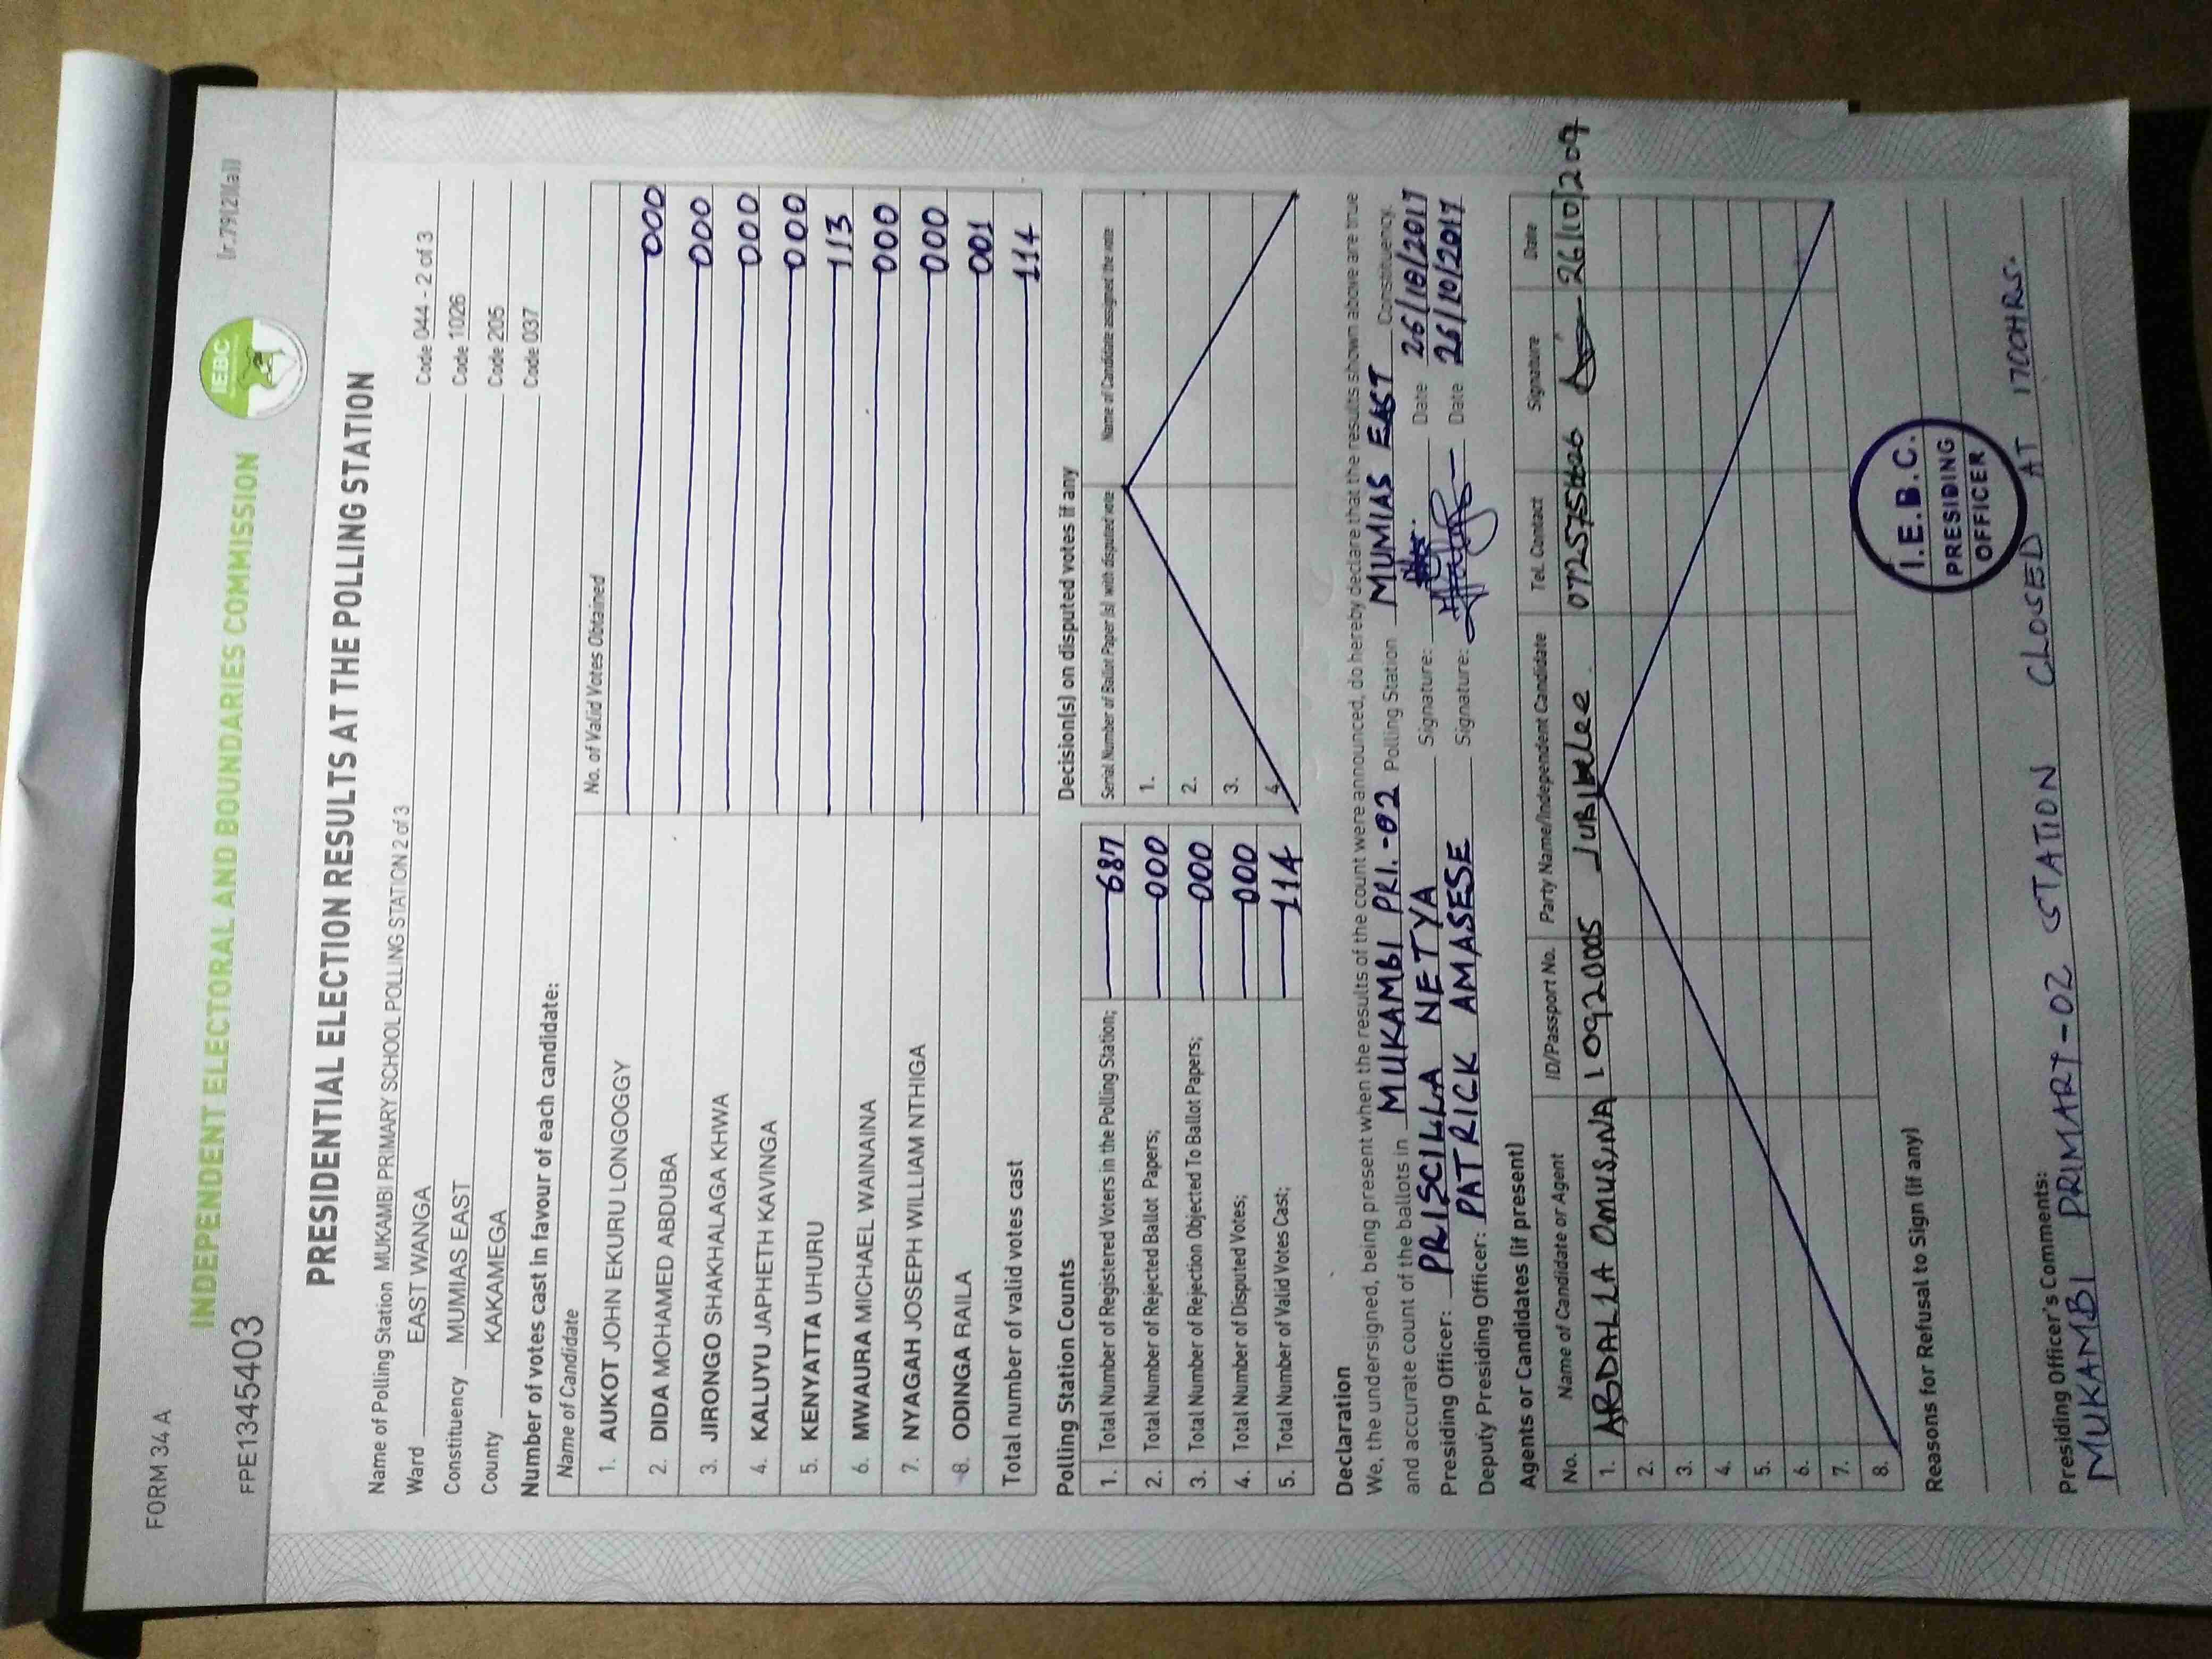 FORM 34A
(r.79)(2)(a)
INDEPENDENT ELECTORAL AND BOUNDARIES COMMISSION
IEBC
FPE1345403
PRESIDENTIAL ELECTION RESULTS AT THE POLLING STATION
Name of Polling Station MUKAMBI PRIMARY SCHOOL POLLING STATION 2 of 3 Code 044 - 2 of 3
Ward EAST WANGA Code 1026
Constituency MUMIAS EAST Code 205
County KAKAMEGA Code 037
Number of votes cast in favour of each candidate:
Name of Candidate No. of Valid Votes Obtained
1. AUKOT JOHN EKURU LONGOGGY 000
2. DIDA MOHAMED ABDUBA 000
3. JIRONGO SHAKHALAGA KHWA 000
4. KALUYU JAPHETH KAVINGA 000
5. KENYATTA UHURU 113
6. MWAURA MICHAEL WAINAINA 000
7. NYAGAH JOSEPH WILLIAM NTHIGA 000
8. ODINGA RAILA 001
Total number of valid votes cast 114
Polling Station Counts
1. Total Number of Registered Voters in the Polling Station; 687
2. Total Number of Rejected Ballot Papers; 000
3. Total Number of Rejection Objected To Ballot Papers; 000
4. Total Number of Disputed Votes; 000
5. Total Number of Valid Votes Cast; 114
Decision(s) on disputed votes if any
Serial Number of Ballot Paper (s) with disputed vote Name of Candidate assigned the vote
1.
2.
3.
4.
Declaration
We, the undersigned, being present when the results of the count were announced, do hereby declare that the results shown above are true
and accurate count of the ballots in MUKAMBI PRI.-02 Polling Station MUMIAS EAST Constituency.
Presiding Officer: PRISCILLA NETYA Signature: Date 26/10/2017
Deputy Presiding Officer: PATRICK AMASESE Signature: Date 26/10/2017
Agents or Candidates (if present)
No. Name of Candidate or Agent ID/Passport No. Party Name/Independent Candidate Tel. Contact Signature Date
1. ABDALLA OMUSINA 10920005 JUBILEE 26/10/
2.
3.
4.
5.
6.
7.
8.
Reasons for Refusal to Sign (if any)
I.E.B.C.
PRESIDING
OFFICER
Presiding Officer's Comments:
MUKAMBI PRIMARY-02 STATION CLOSED AT 1700HRS.